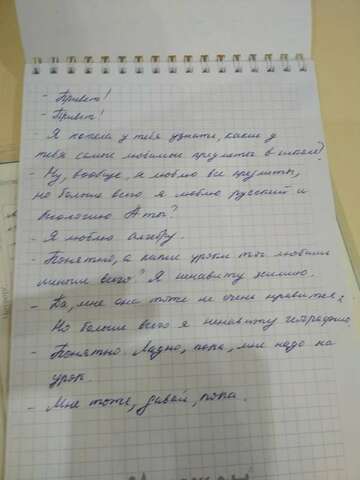 - Привет!
- Привет!
- Я хотела у тебя узнать, какие у
тебя самые любимые предметы в школе?
- Ну, вообще, я люблю все предметы,
но больше всего я люблю русский и
биологию. А ты?
- Я люблю алгебру.
- Понятно, а какие уроки ты любишь
меньше всего? Я ненавижу химию.
- Да, мне она тоже не очень нравится,
Но больше всего я ненавижу географию.
- Понятно. Ладно, пока, мне надо на
урок.
- Мне тоже, давай, пока.